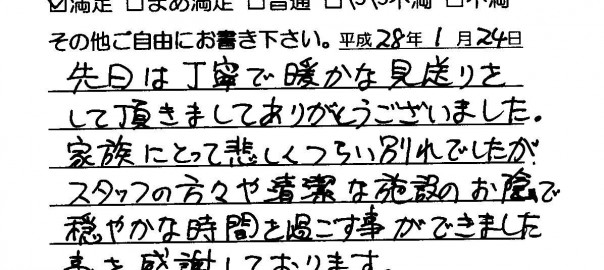 ☑満足 □まあ満足 □普通 □やや不満 □不満
その他ご自由にお書き下さい。平成28年1月24日
先日は丁寧で暖かな見送りを
して頂きましてありがとうございました。
家族にとって悲しくつらい別れでしたが
スタッフの方々や清潔な施設のお陰で
穏やかな時間を過ごす事ができました
事を感謝しております。